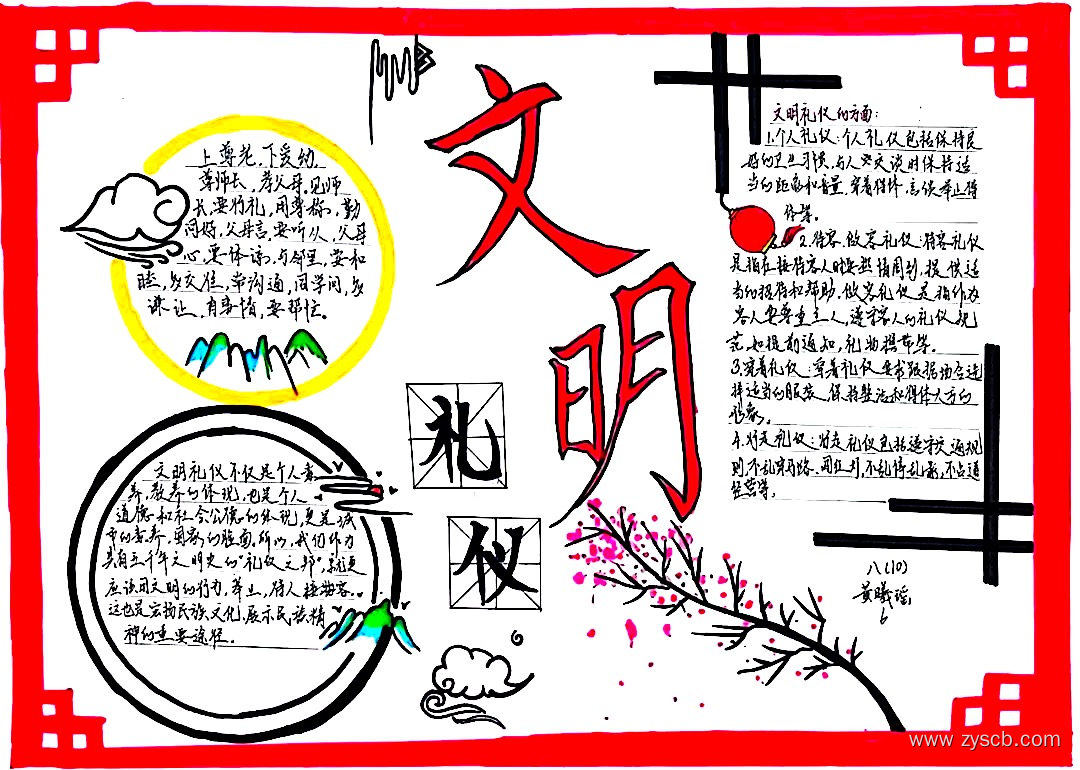 文明
礼
仪
上尊老,下爱幼,
尊师长,孝父母,见师
长,要行礼,用尊称,勤
问好,父母言,要听从,父母
心,要体谅,与邻里,要和
睦,多交往,常沟通,同学间,多
谦让,有事情,要帮忙。
文明礼仪不仅是个人素
养、教养的体现,也是个人
道德和社会公德的体现,更是城
市的素养,国家的脸面。所以,我们作为
具有五千年文明史的“礼仪之邦”,就更
应该用文明的行为、举止,待人接物客。
这也是宏扬民族文化、展示民族精
神的重要途径。
文明礼仪的方面:
1.个人礼仪:个人礼仪包括保持良
好的卫生习惯,与人交谈时保持适
当的距离和音量,穿着得体,言谈举止得
体等。
2.待客、做客礼仪:待客礼仪
是指在接待客人时要热情周到,提供适
当的招待和帮助。做客礼仪是指作为
客人要尊重主人,遵守客人的礼仪规
范,如提前通知,礼物携带等。
3.穿着礼仪:穿着礼仪要求根据场合选
择适当的服装,保持整洁和得体大方的
形象。
4.行走礼仪:行走礼仪包括遵守交通规
则,不乱穿马路、闯红灯,不乱停乱靠,不占道
经营等。
八(10)
黄曦瑶
6
www.zyscb.com